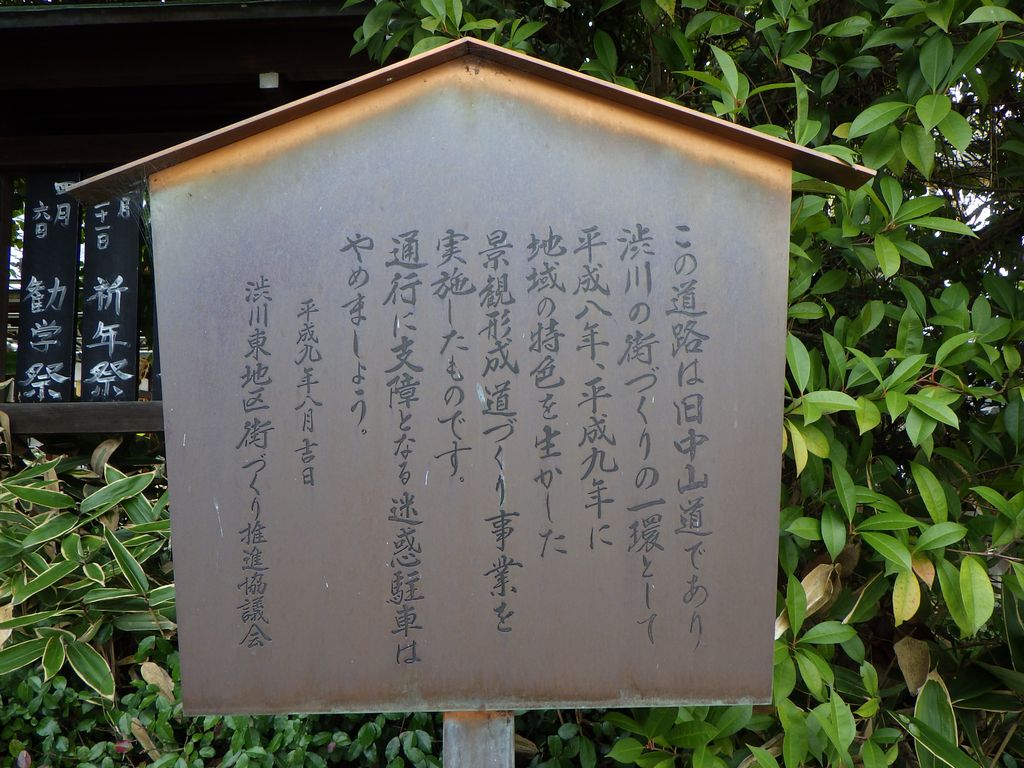 この道路は旧中山道であり
渋川の街づくりの一環として
平成八年、平成九年に
地域の特色を生かした
景観形成道づくり事業を
実施したものです。
通行に支障となる迷惑駐車は
やめましょう。
平成九年八月吉日
渋川東地区街づくり推進協議会
月
二十一日
祈年祭
四月
六日
勧学祭